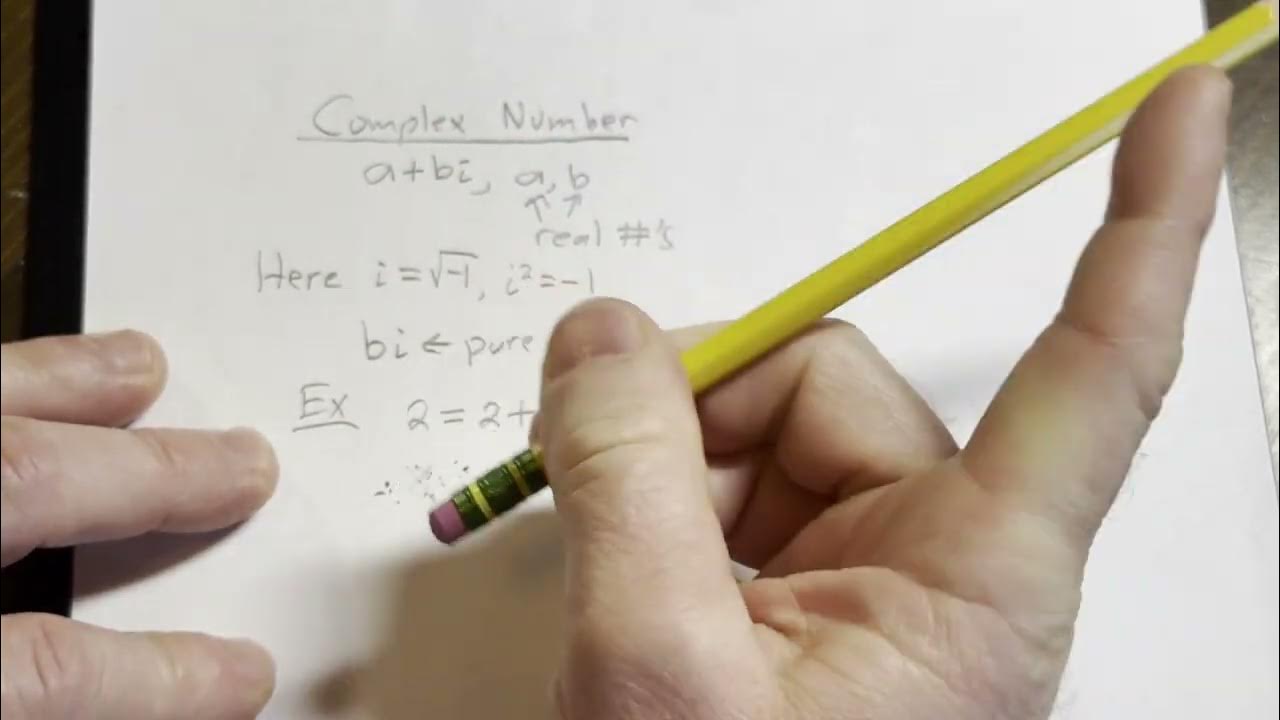 Complex Number
a+bi, a, b
↑ ↑
real #'s
Here i=√-1, i²=-1
bi ← pure
Ex 2=2+